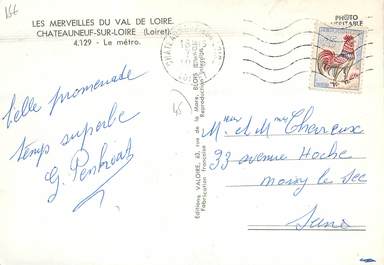 156
LES MERVEILLES DU VAL DE LOIRE
CHATEAUNEUF-SUR-LOIRE (Loiret)
4.129 - Le métro.
PHOTO
VÉRITABLE
belle promenade
temps superbe
G.
Editions VALOIRE, 63, rue de la Mare, BLOIS
Fabrication française
Reproduction interdite
Mr et Mme Chevreux
33 avenue Hoche
Noisy le Sec
Seine